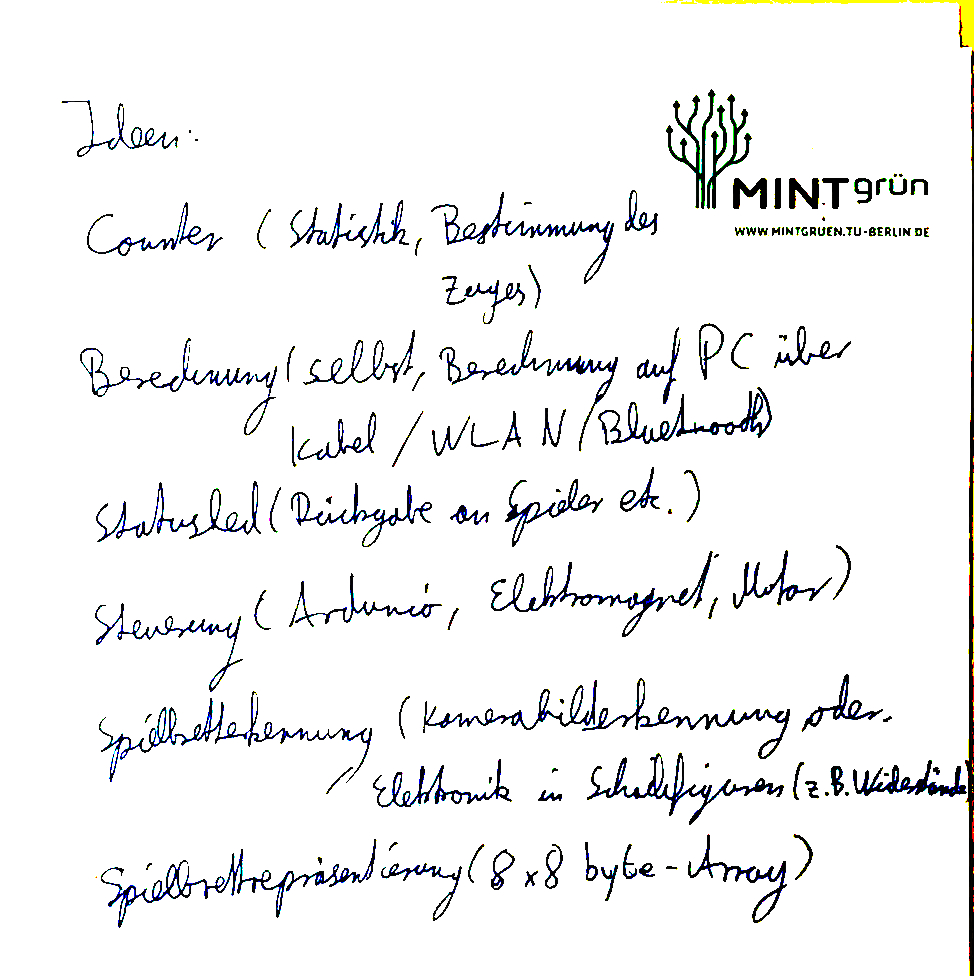 Ideen:
MINTgrün
WWW.MINTGRUEN.TU-BERLIN.DE
Counter (Statistik, Bestimmung des
Zuges)
Berechnung (selbst, Berechnung auf PC über
Kabel / WLAN / Bluetooth)
Statusled (Rückgabe an Spieler etc.)
Steuerung (Ardunio, Elektromagnet, Motor)
Spielbretterkennung (Kamerabilderkennung oder
Elektronik in Schachfiguren (z.B. Widerstände
Spielbrettrepräsentierung (8x8 byte-Array)